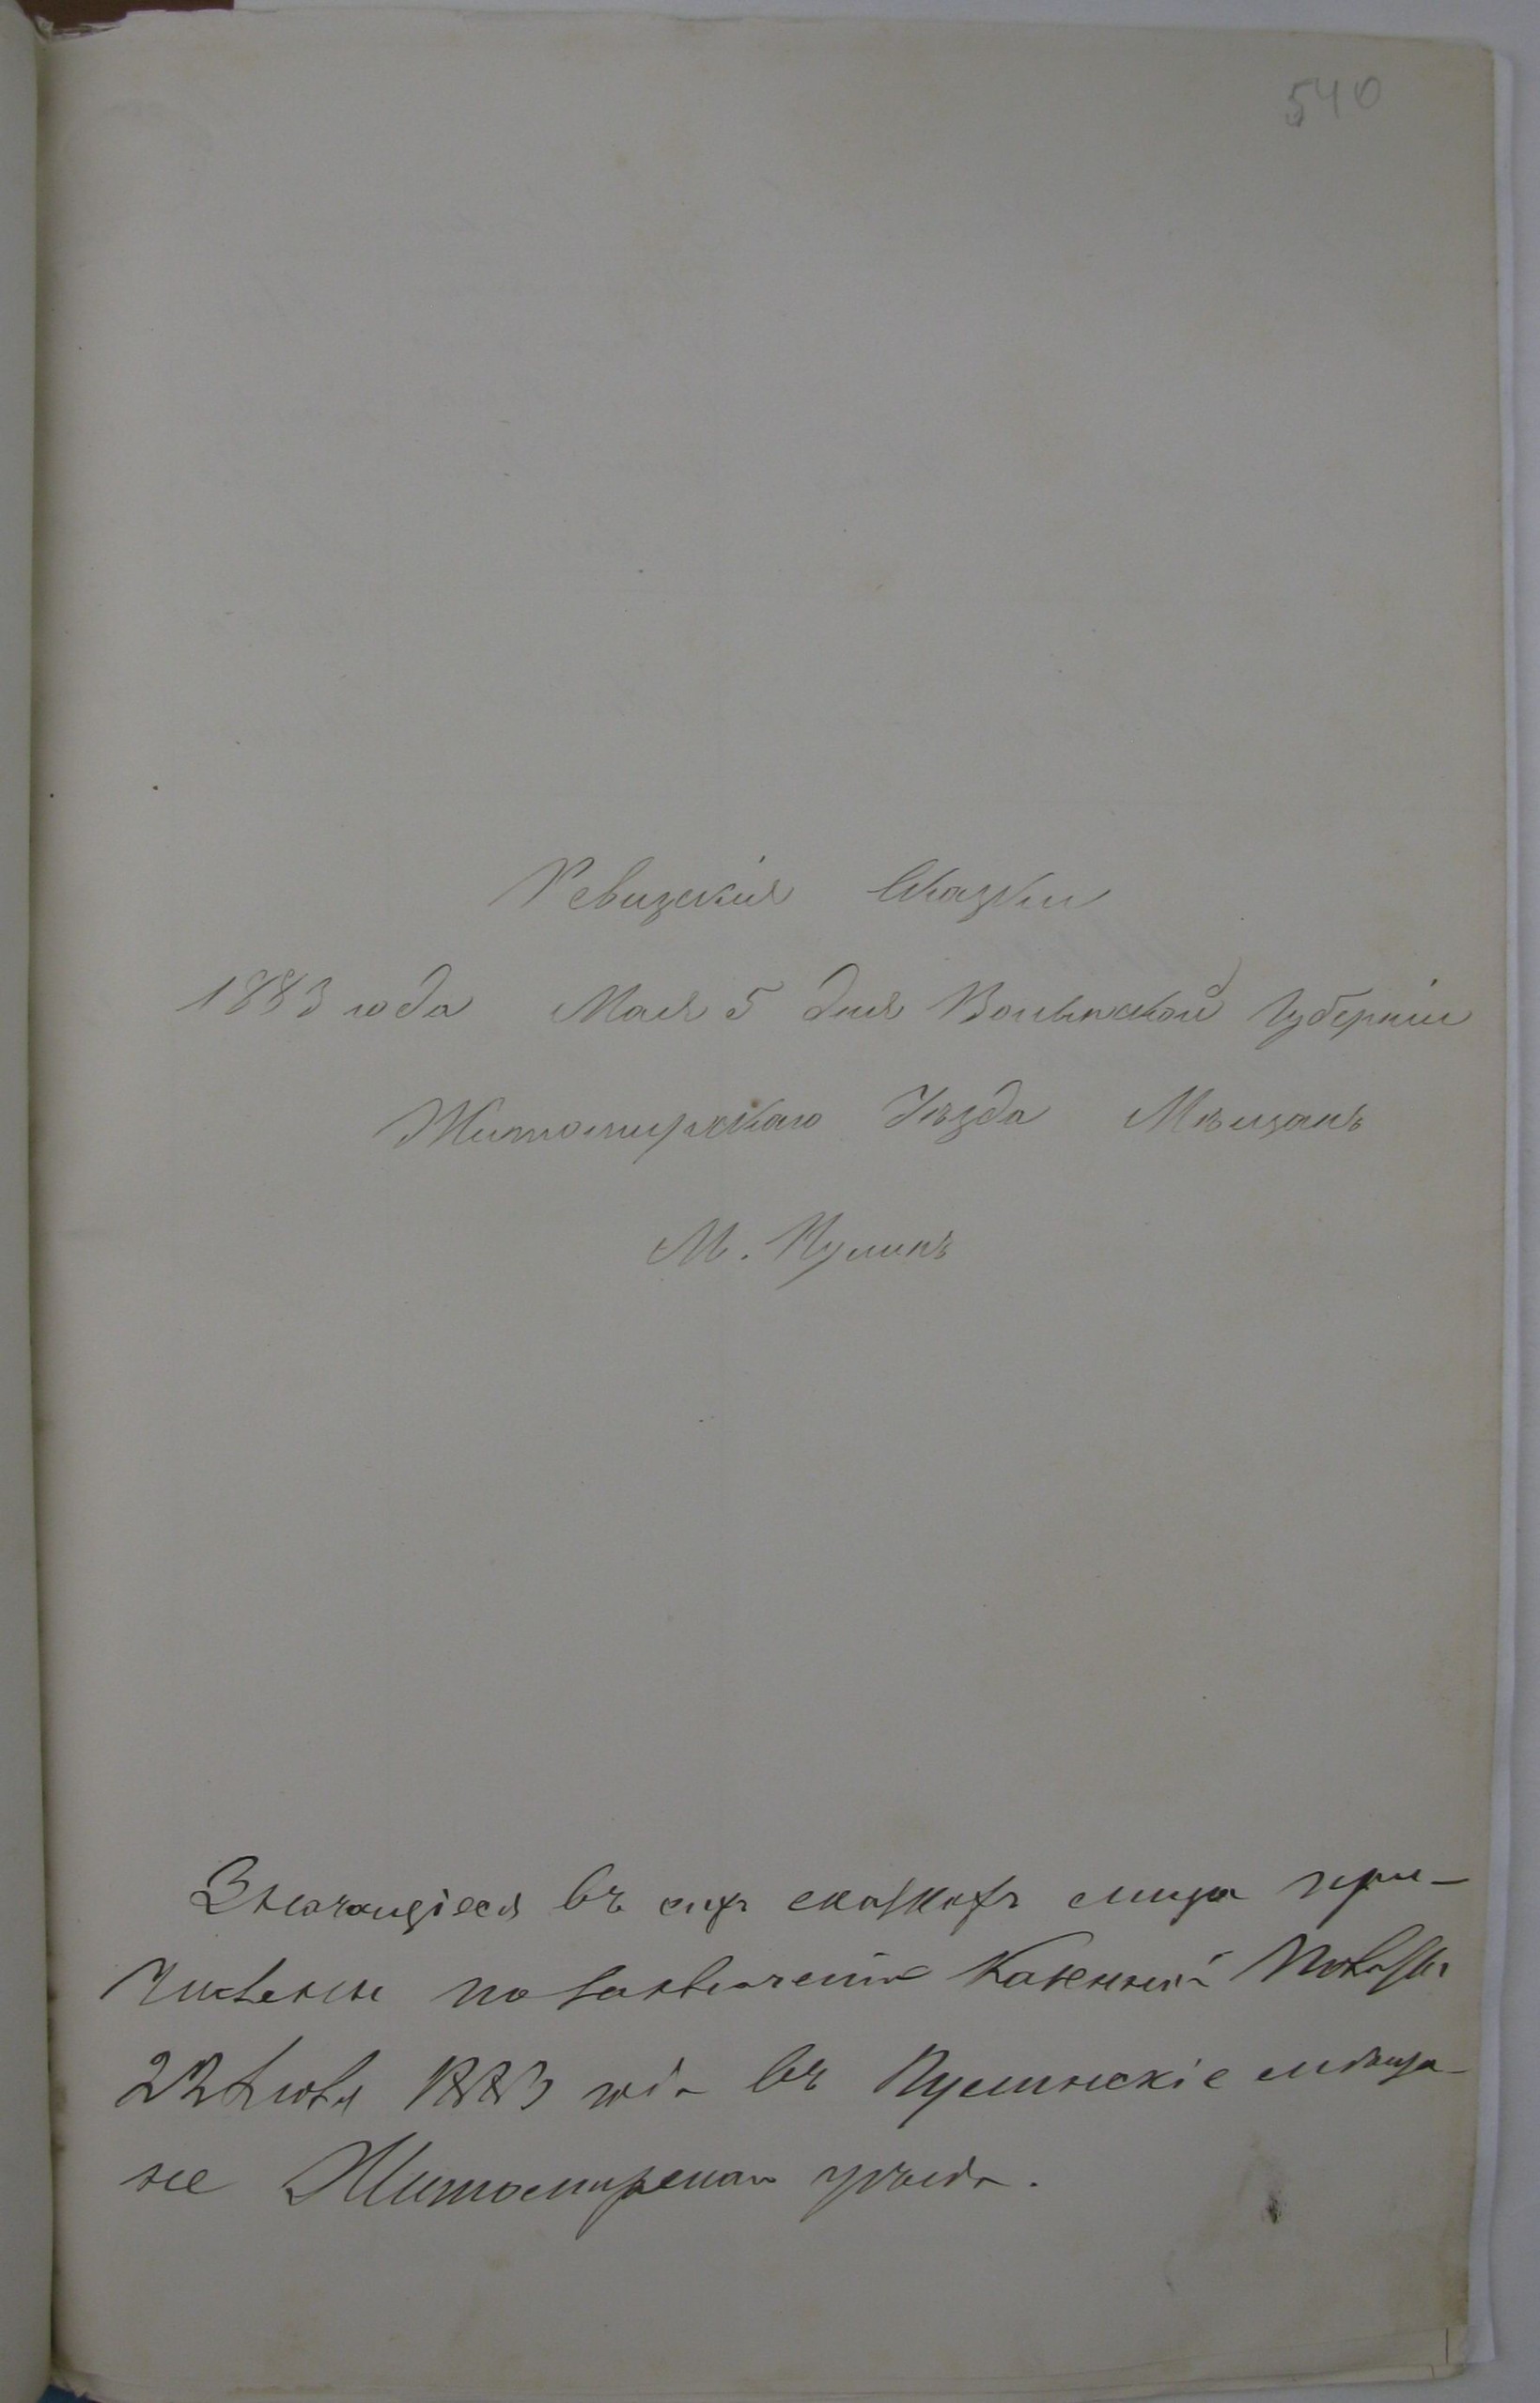 540
Ревизскія Сказки
1883 года Мая 5 дня Волынской Губерніи
Житомирскаго Уѣзда Мѣщанъ
М. Пулинъ
Значащіеся въ сихъ сказкахъ лица при-
числены по заключенію Казенной Палаты
22 Іюля 1883 года въ Пулинскіе мѣща-
не Житомирскаго уѣзда.